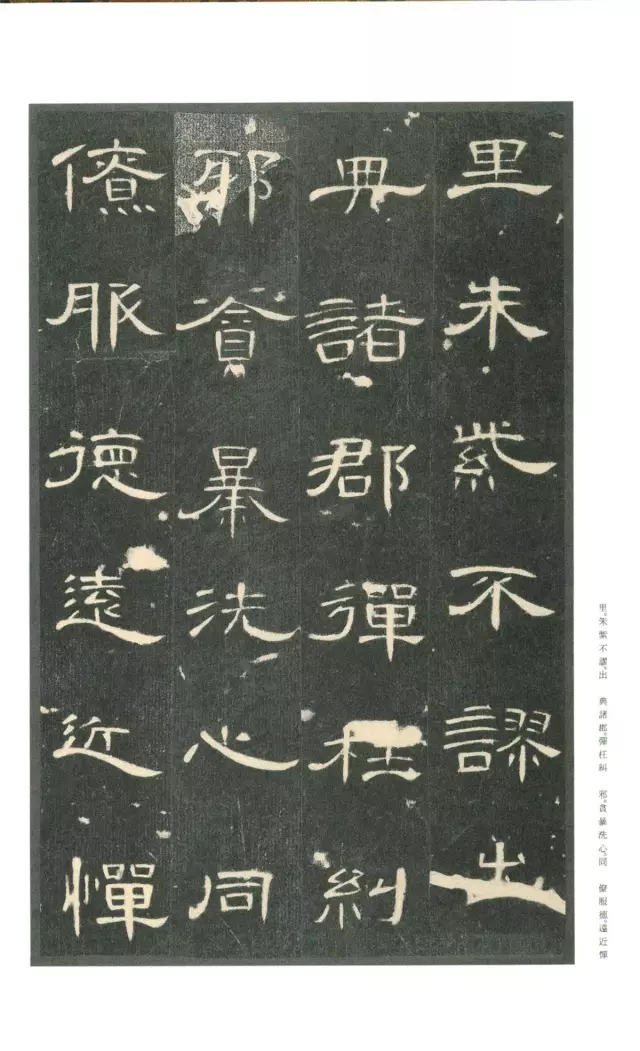 里朱紫不謬出
典諸郡彈枉糾
邪貪暴洗心同
僚服德遠近憚
里。朱紫不謬。出 典諸郡。彈枉糾 邪。貪暴洗心。同 僚服德。遠近憚